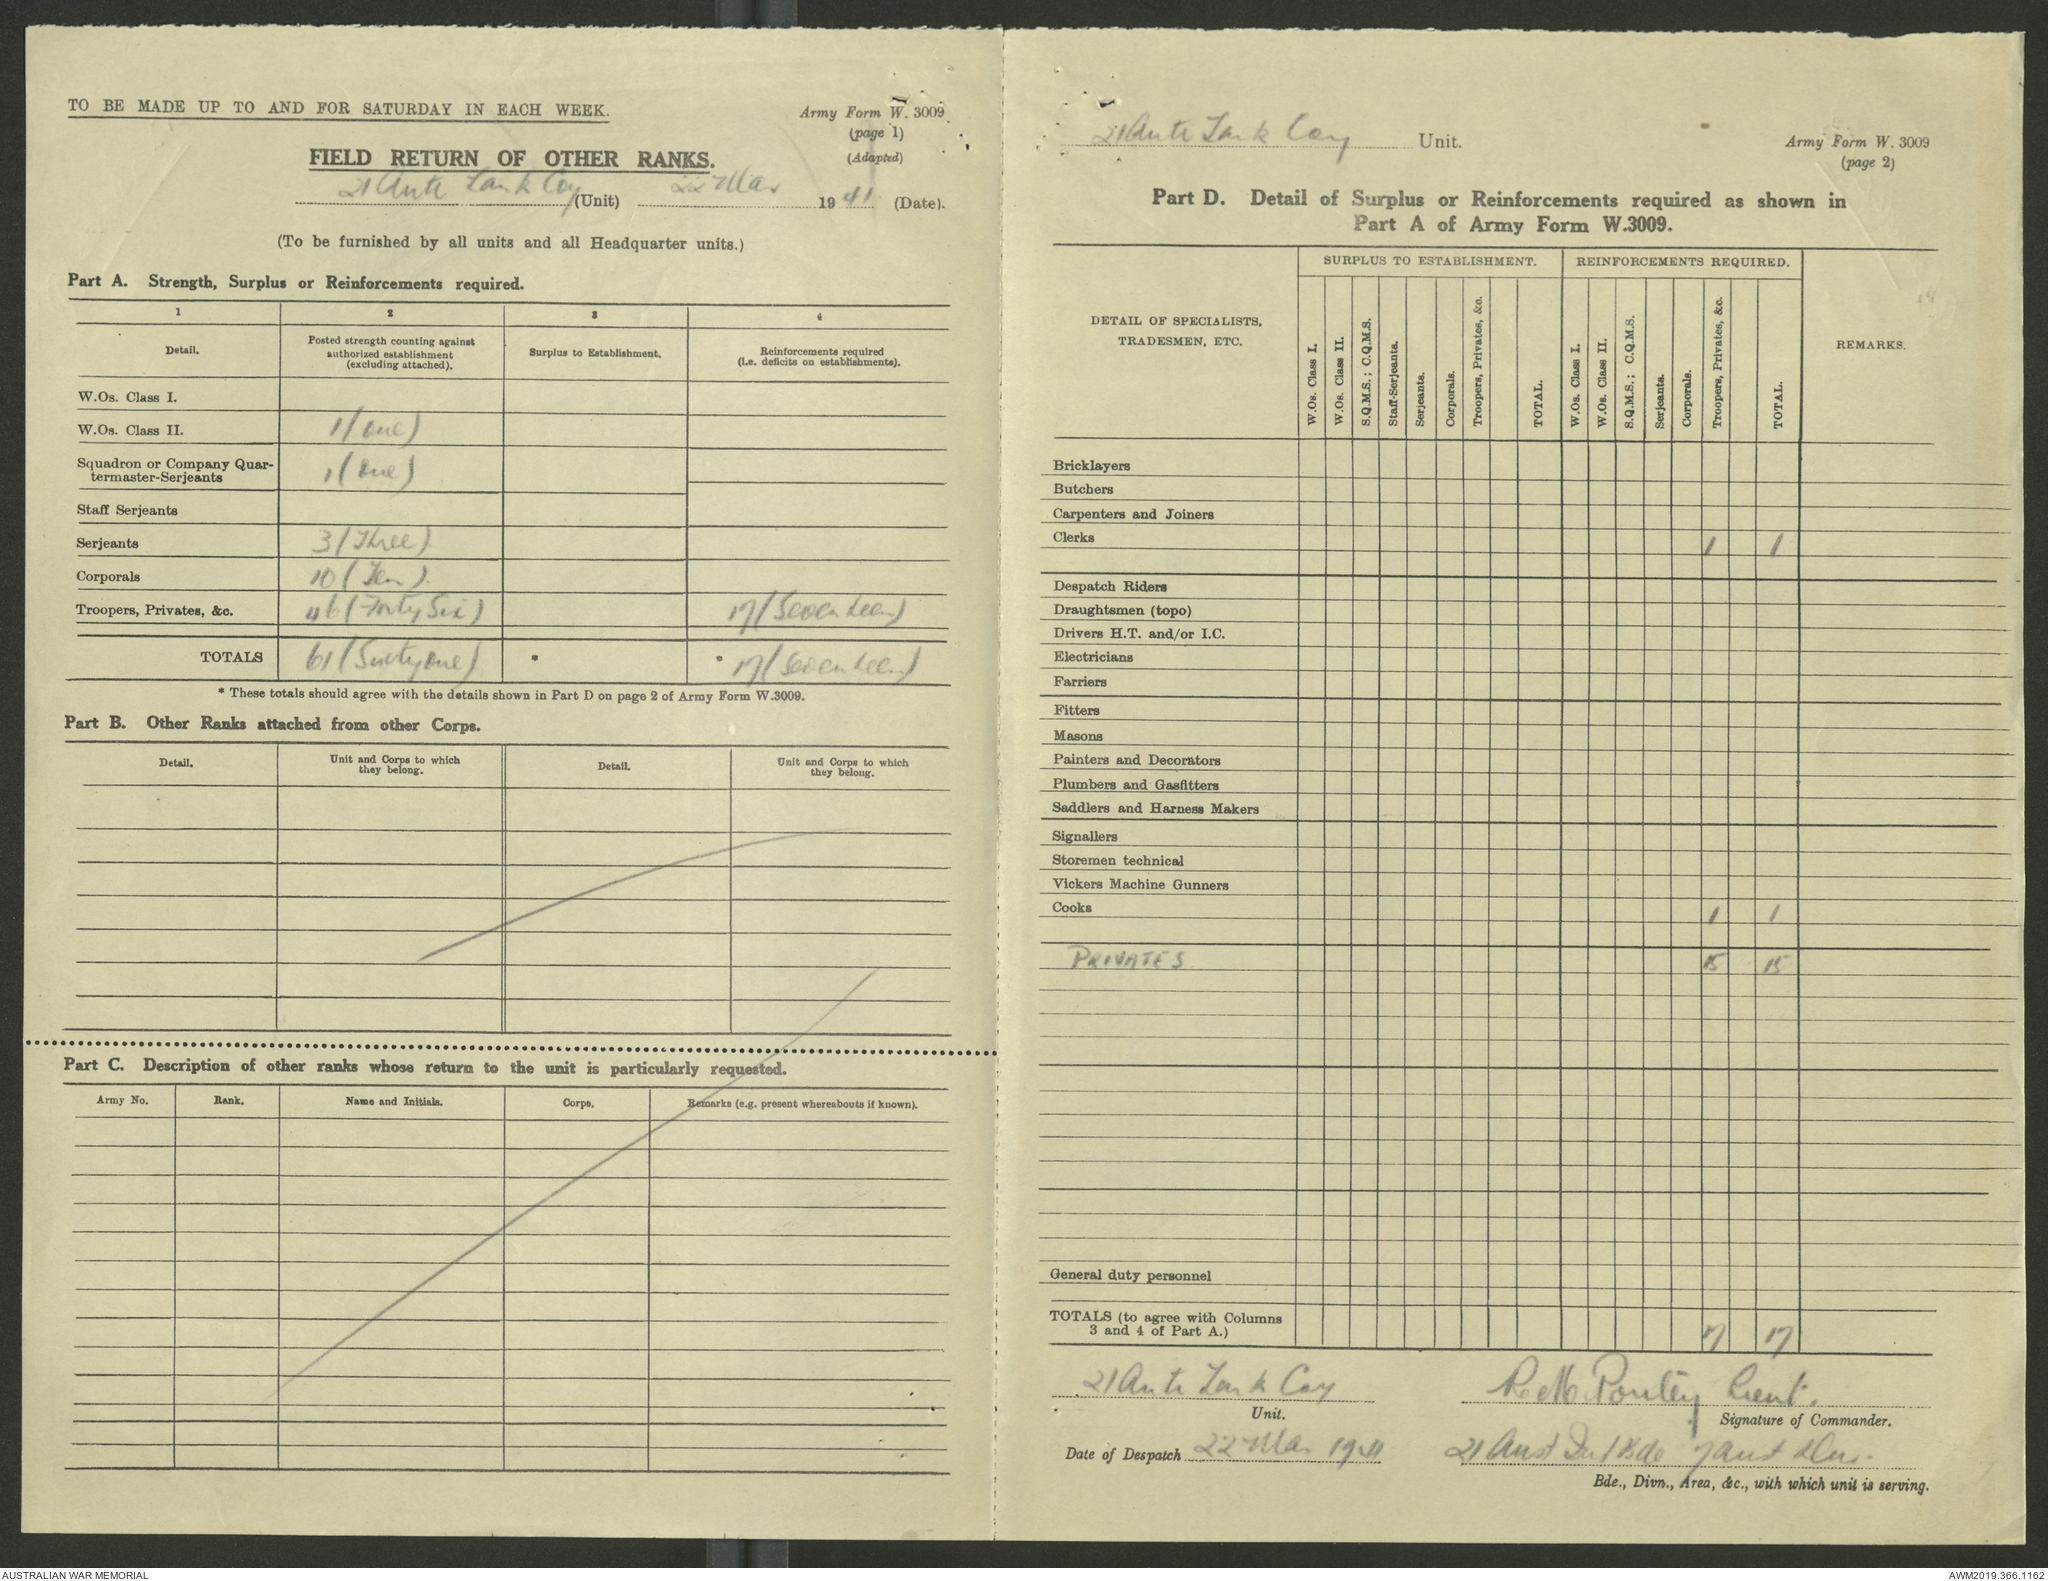 TO BE MADE UP TO AND FOR SATURDAY IN EACH WEEK.
Army Form W. 3009
(page 1)
(Adapted)
FIELD RETURN OF OTHER RANKS.
21 Anti Tank Coy (Unit) 22 Mar 1941 (Date).
(To be furnished by all units and all Headquarter units.)
Part A. Strength, Surplus or Reinforcements required.
1 2 3 4
Detail. Posted strength counting against authorized establishment (excluding attached). Surplus to Establishment. Reinforcements required (i.e. deficits on establishments).
W.Os. Class I.
W.Os. Class II. 1 (One)
Squadron or Company Quar-
termaster-Serjeants 1 (One)
Staff Serjeants
Serjeants 3 (Three)
Corporals 10 (Ten).
Troopers, Privates, &c. 46 (Forty Six) 17 (Seventeen)
TOTALS 61 (Sixty One) * * 17 (Seventeen)
* These totals should agree with the details shown in Part D on page 2 of Army Form W.3009.
Part B. Other Ranks attached from other Corps.
Detail. Unit and Corps to which they belong. Detail. Unit and Corps to which they belong.
Part C. Description of other ranks whose return to the unit is particularly requested.
Army No. Rank. Name and Initials. Corps. Remarks (e.g. present whereabouts if known).
21 Anti Tank Coy Unit.
Army Form W. 3009
(page 2)
Part D. Detail of Surplus or Reinforcements required as shown in
Part A of Army Form W.3009.
DETAIL OF SPECIALISTS, TRADESMEN, ETC. SURPLUS TO ESTABLISHMENT. REINFORCEMENTS REQUIRED. REMARKS.
W.Os. Class I. W.Os. Class II. S.Q.M.S.; C.Q.M.S. Staff-Serjeants. Serjeants. Corporals. Troopers, Privates, &c. TOTAL. W.Os. Class I. W.Os. Class II. S.Q.M.S.; C.Q.M.S. Serjeants. Corporals. Troopers, Privates, &c. TOTAL.
Bricklayers
Butchers
Carpenters and Joiners
Clerks 1 1
Despatch Riders
Draughtsmen (topo)
Drivers H.T. and/or I.C.
Electricians
Farriers
Fitters
Masons
Painters and Decorators
Plumbers and Gasfitters
Saddlers and Harness Makers
Signallers
Storemen technical
Vickers Machine Gunners
Cooks 1 1
PRIVATES 15 15
General duty personnel
TOTALS (to agree with Columns
3 and 4 of Part A.) 17 17
21 Anti Tank Coy
Unit.
Lieut.
Signature of Commander.
Date of Despatch 22 Mar 1941
21 Aust Inf Bde 7 Aust Div.
Bde., Divn., Area, &c., with which unit is serving.
AUSTRALIAN WAR MEMORIAL
AWM2019.366.1162